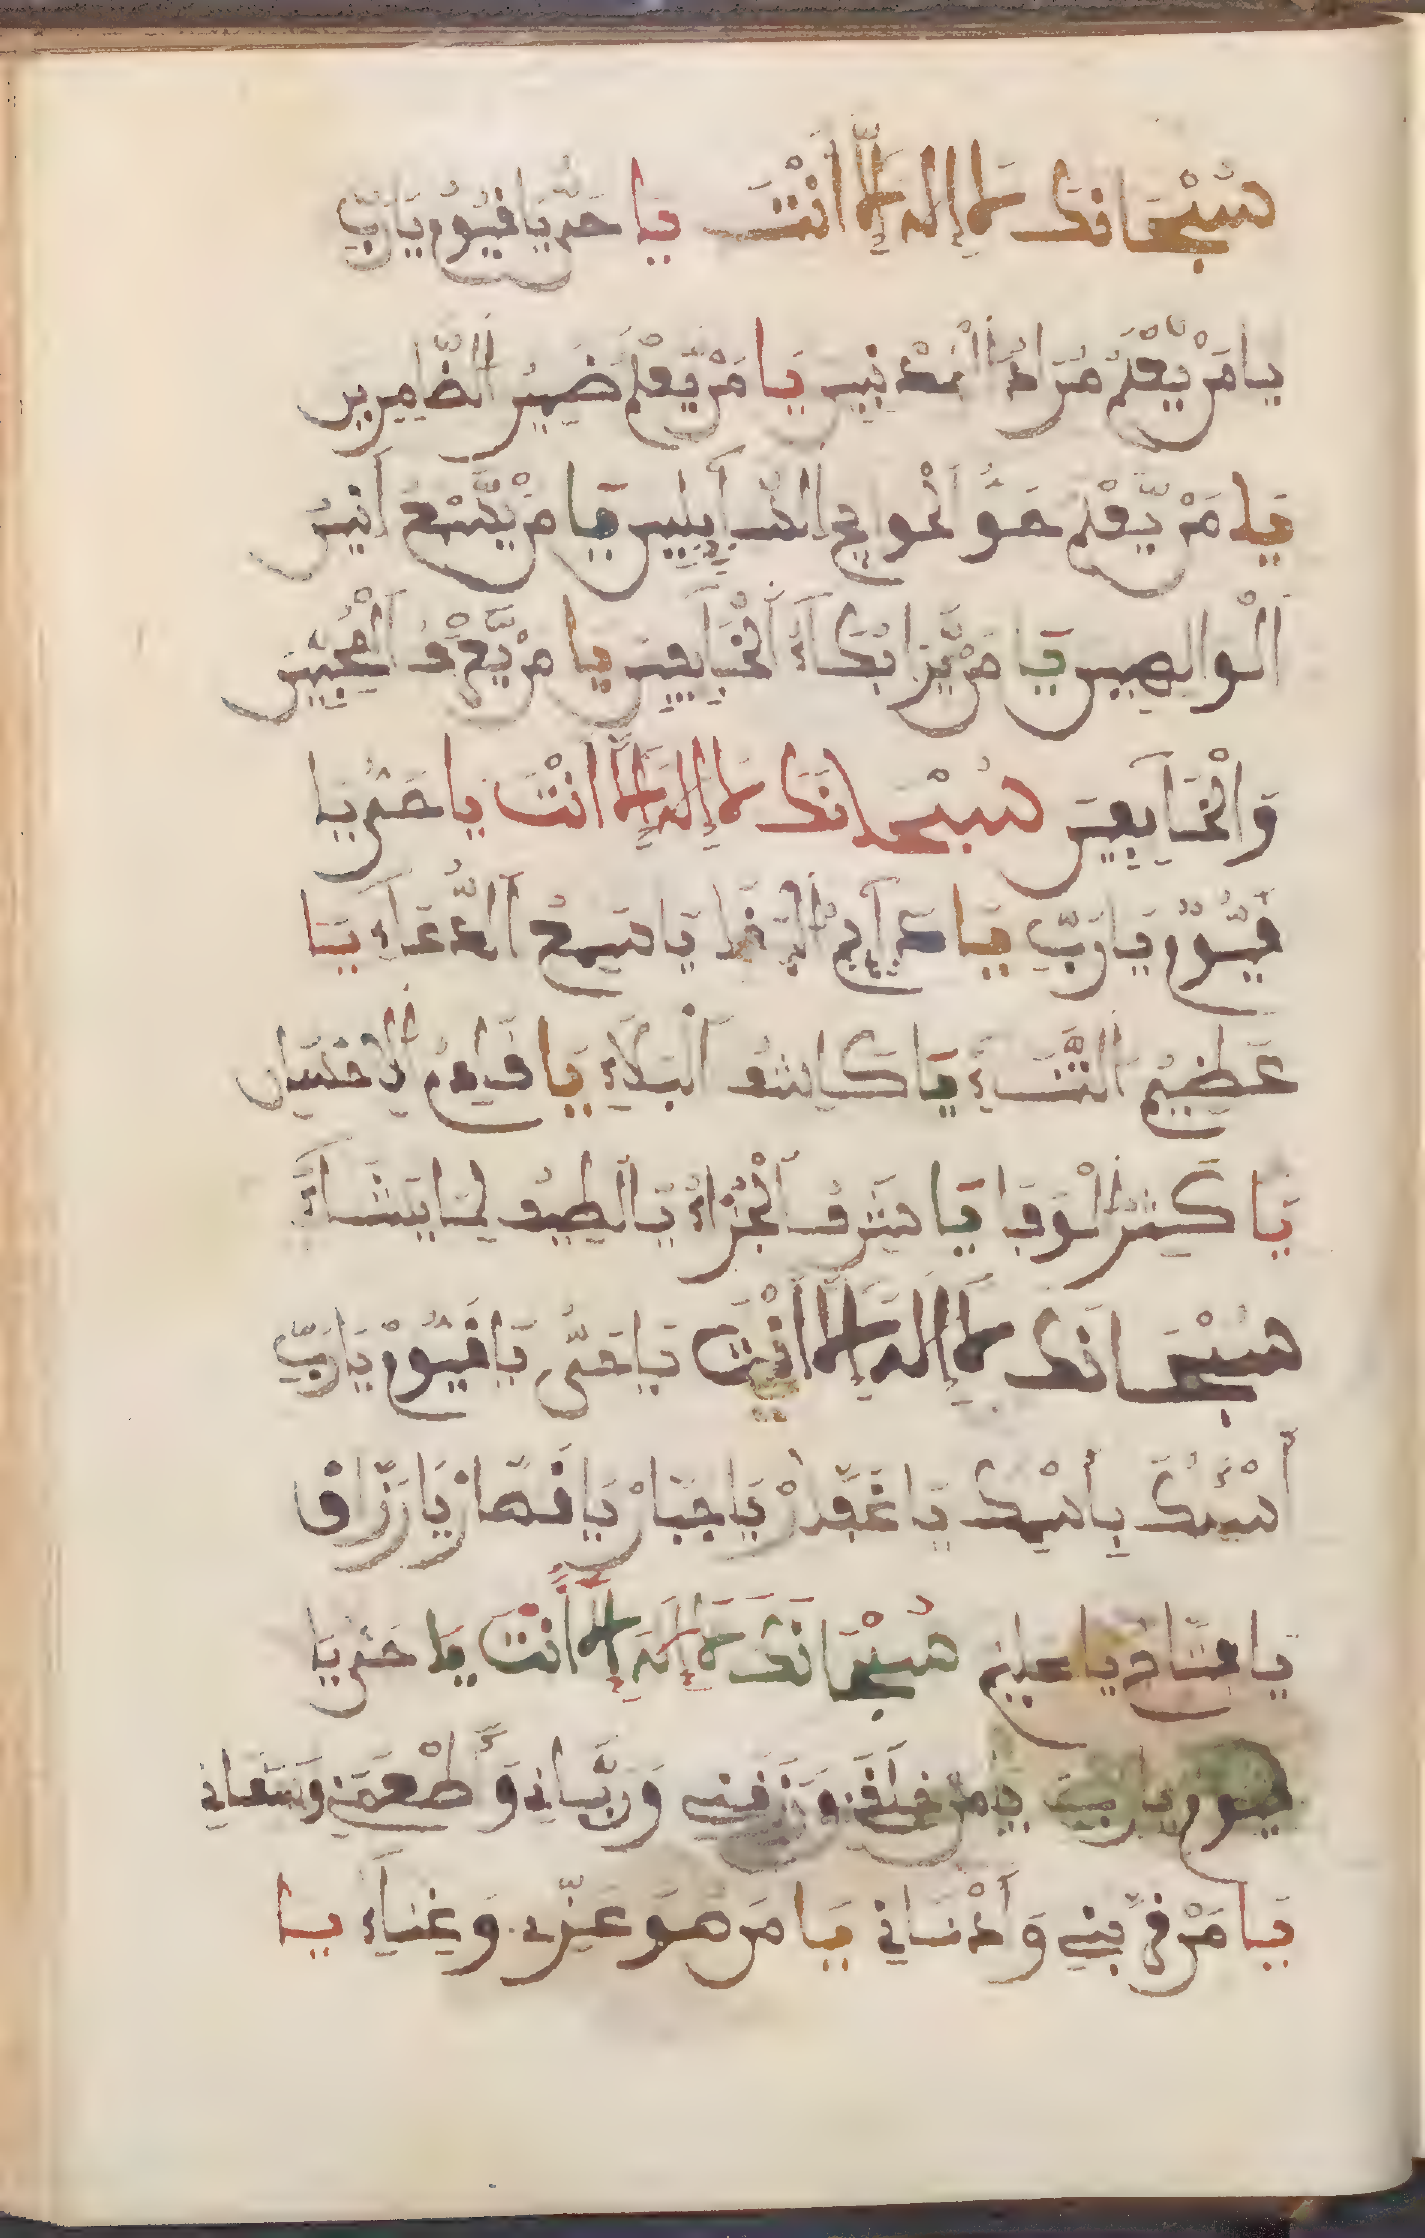 سُبْحَانَكَ لَا إِلَهَ إِلَّا أَنْتَ يَا حَيُّ يَا قَيُّومُ يَا رَبِّ
يَا مَنْ يَعْلَمُ مُرَادَ الْمُذْنِبِينَ يَا مَنْ يَعْلَمُ ضَمِيرَ الضَّامِرِينَ
يَا مَنْ يَّعْلَمُ يَا مَنْ يَّسْمَعُ أَنِينَ
الْوَاصِبِينَ يَا مَنْ يَّرَا بُكَاءَ الْخَآيِفِينَ يَا مَنْ
وَالْخَآيِفِينَ سُبْحَانَكَ لَا إِلَهَ إِلَّا أَنْتَ يَا حَيُّ يَا
قَيُّومُ يَا رَبِّ يَا يَا سَمِيعُ الدُّعَآءِ يَا
عَظِيمُ الثَّنَاءِ يَا كَاشِفُ الْبَلَاءِ يَا
يَا كَثِيرُ الْوَفَا يَا شَرِيفُ الْجَزَاءِ يَا لَطِيفُ لِمَا يَشَآءُ
سُبْحَانَكَ لَا إِلَهَ إِلَّا أَنْتَ يَا حَيُّ يَا قَيُّومُ يَا رَبِّ
أَسْئَلُكَ بِأَسْمِكَ يَا غَفَّارُ يَا جَبَّارُ يَا قَهَّارُ يَا رَزَّاقُ
يَا فَتَّاحُ يَا عَلِيمُ سُبْحَانَكَ لَا إِلَهَ إِلَّا أَنْتَ يَا حَيُّ يَا
قَيُّومُ يَا رَبِّ يَا مَنْ خَلَقَنِي وَرَزَقَنِي وَرَبَّانِي وَأَطْعَمَنِي وَسَقَانِي
يَا مَنْ قَرَّبَنِي وَأَدْنَانِي يَا مَنْ هُوَ عِزِّي وَغِنَآءِ يَا